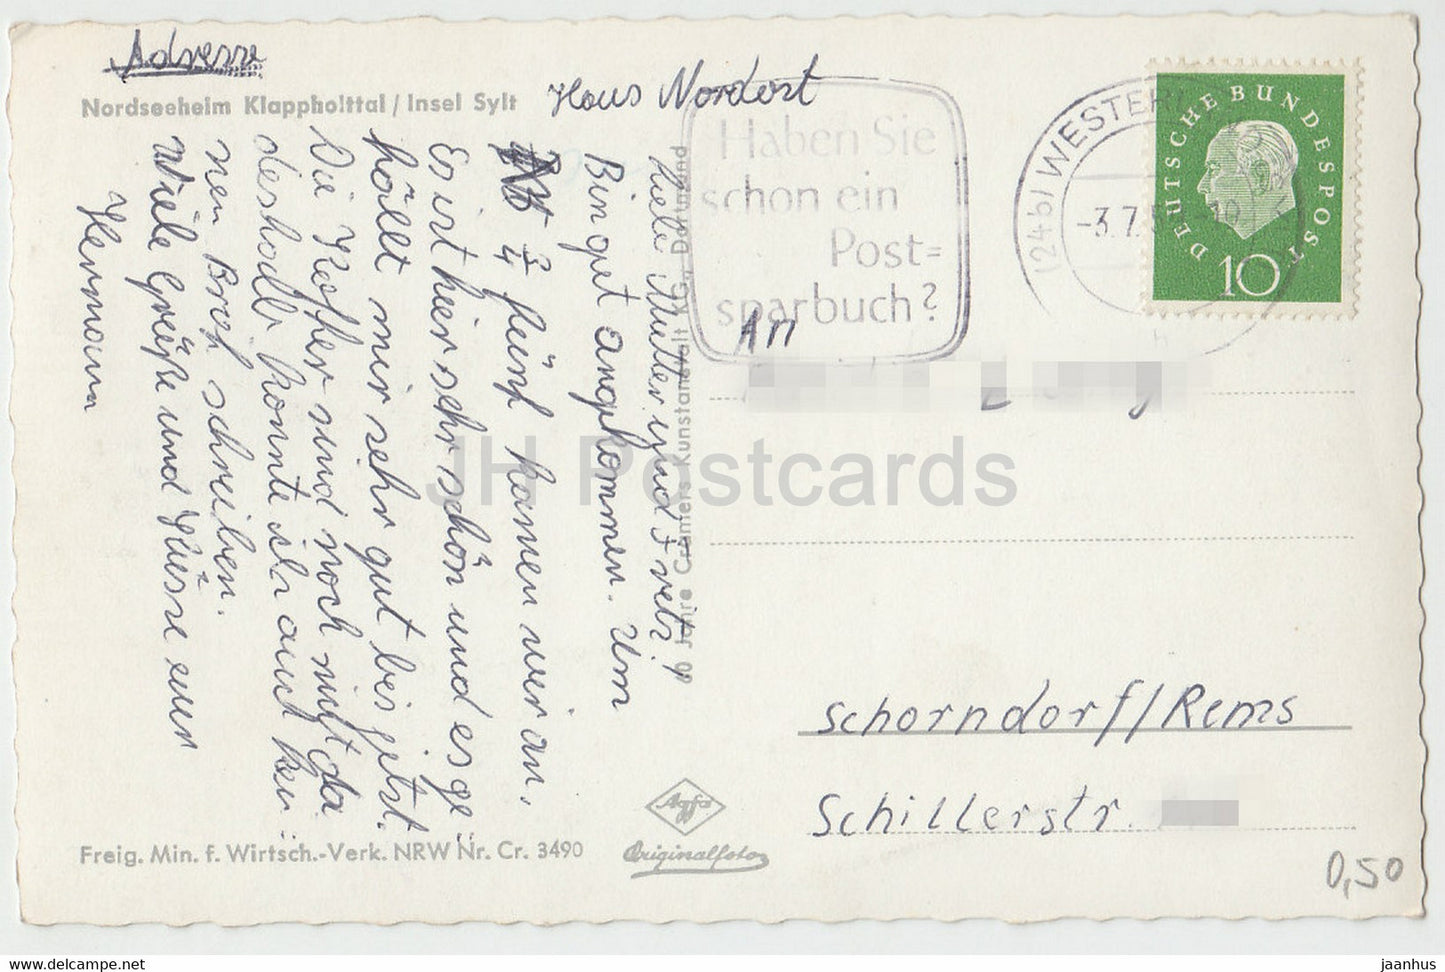 Adresse
Nordseeheim Klappholttal / Insel Sylt
Haus Nordort
Liebe Mutter und Fretz!
Bin gut angkommen. Um
3/4 fünf kamen wir an.
Es ist hier sehr schön und es ge
hällt mir sehr gut bis jetst.
Die Koffer sind noch nicht da
deshalb konnte ich auch kei
nen Brif schreiben.
Viele Grüße und Küsse euer
Hermann
60 Jahre Cramers Kunstanstalt KG., Dortmund
Haben Sie
schon ein
Post=
sparbuch?
(24b) WESTERL
-3.7.5
DEUTSCHE BUNDESPOST
10
An
Schorndorf/Rems
Schillerstr.
Agfa
Originalfoto
Freig. Min. f. Wirtsch.-Verk. NRW Nr. Cr. 3490
0,50
JH Postcards
www.delcampe.net
jaanhus